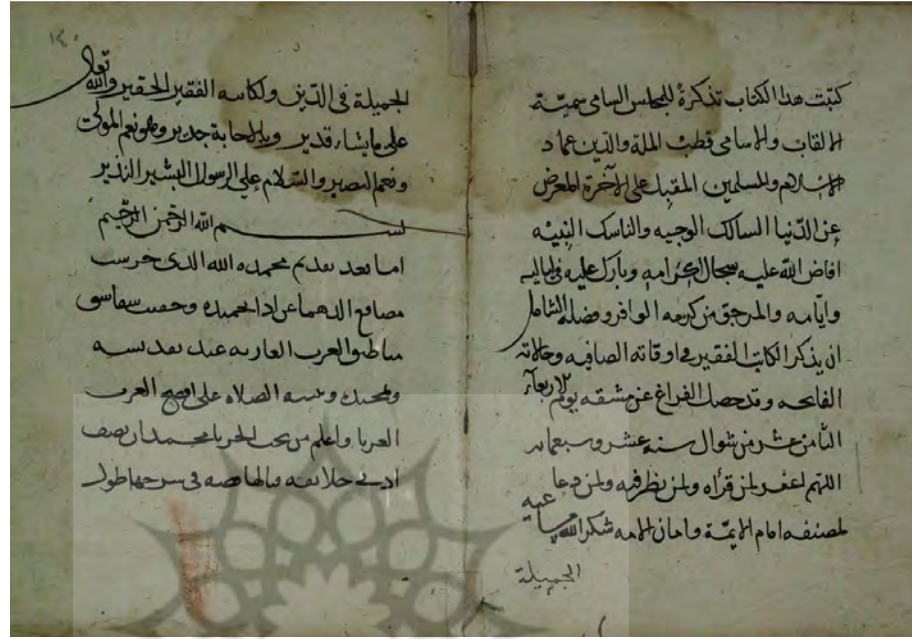 كتبت هذا الكتاب تذكرة للمجلس السامي سميّة
الالقاب والاسامي قطب الملة والدين عماد
الاسلام والمسلمين المقبل على الاخرة المعرض
عن الدّنيا السالك الوجيه والناسك النبيه
افاض اللّه عليه سجال اكرامه وبارك عليه في لياليه
وايّامه والمرجوّ من كرمه الوافر وفضله الشامل
ان يذكر الكاتب الفقير في اوقاته الصافيه وحالاته
الفايحه وقد حصل الفراغ عن مشقه يوم الاربعاء
الثامن عشر من شوال سنه عشر وسبعمايه
اللهم اغفر لمن قرأه ولمن نظر فيه ولمن دعا
لمصنفه امام الايمّة وامان الامه شكر الله مساعيه
الجميلة
١٤٠
الجميلة في الدّين ولكاتبه الفقير الحقير والله تعالى
على ما يشاء قدير وبالاجابة جدير وهو نعم المولى
ونعم النصير والسّلام على الرسول البشير النذير
بسم اللّه الرّحمن الرّحيم
اما بعد تقديم محمده الله الذي خرست
مصاقع الدهما عن اداء تحميده
مناطق العرب العاربه عند تقديسه
وتمجيده الصلاه على افصح العرب
العربا واعلم من تحت الجربا محمد